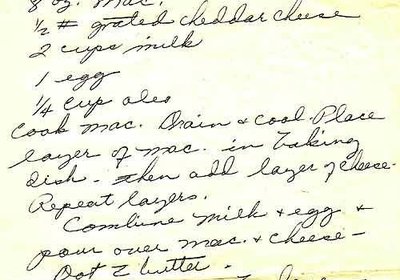 8 oz. Mac.
½ # grated cheddar cheese
2 cups milk
1 egg
¼ cup oleo
Cook mac. Drain & cool. Place
layer of mac. in baking
dish - then add layer of cheese.
Repeat layers.
Combine milk & egg &
pour over mac. & cheese -
Dot c butter.